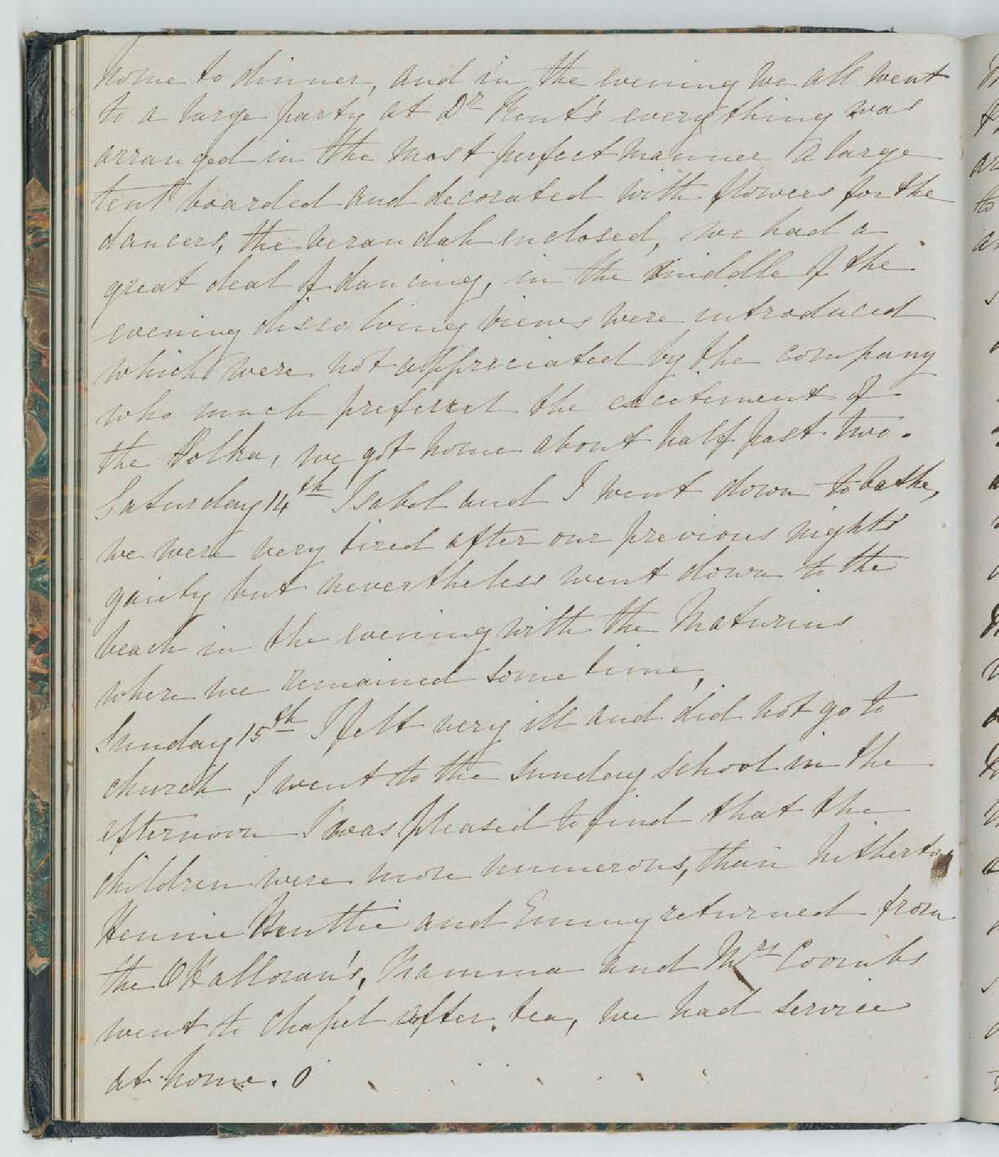 home to dinner, and in the evening we all went
to a large party at Dr Kent's everything was
arranged in the most perfect manner A large
tent boarded and decorated with flowers for the
dancers, the verandah enclosed, we had a
great deal of dancing, in the middle of the
evening dissolving views were introduced
which were not appreciated by the company
who much preferred the excitement of
the Polka, we got home about half past two.
Saturday 14th Isabel and I went down to bathe,
we were very tired after our previous nights
gaiety but nevertheless went down to the
beach in the evening with the Maturins
where we remained some time,
Sunday 15th I felt very ill and did not go to
church, I went to the sunday school in the
afternoon I was pleased to find that the
children were more numerous, than hitherto
Hennie and Emmy returned from
the O'Halloran's, Mamma and Mrs Coombs
went to chapel after tea, we had service
at home.